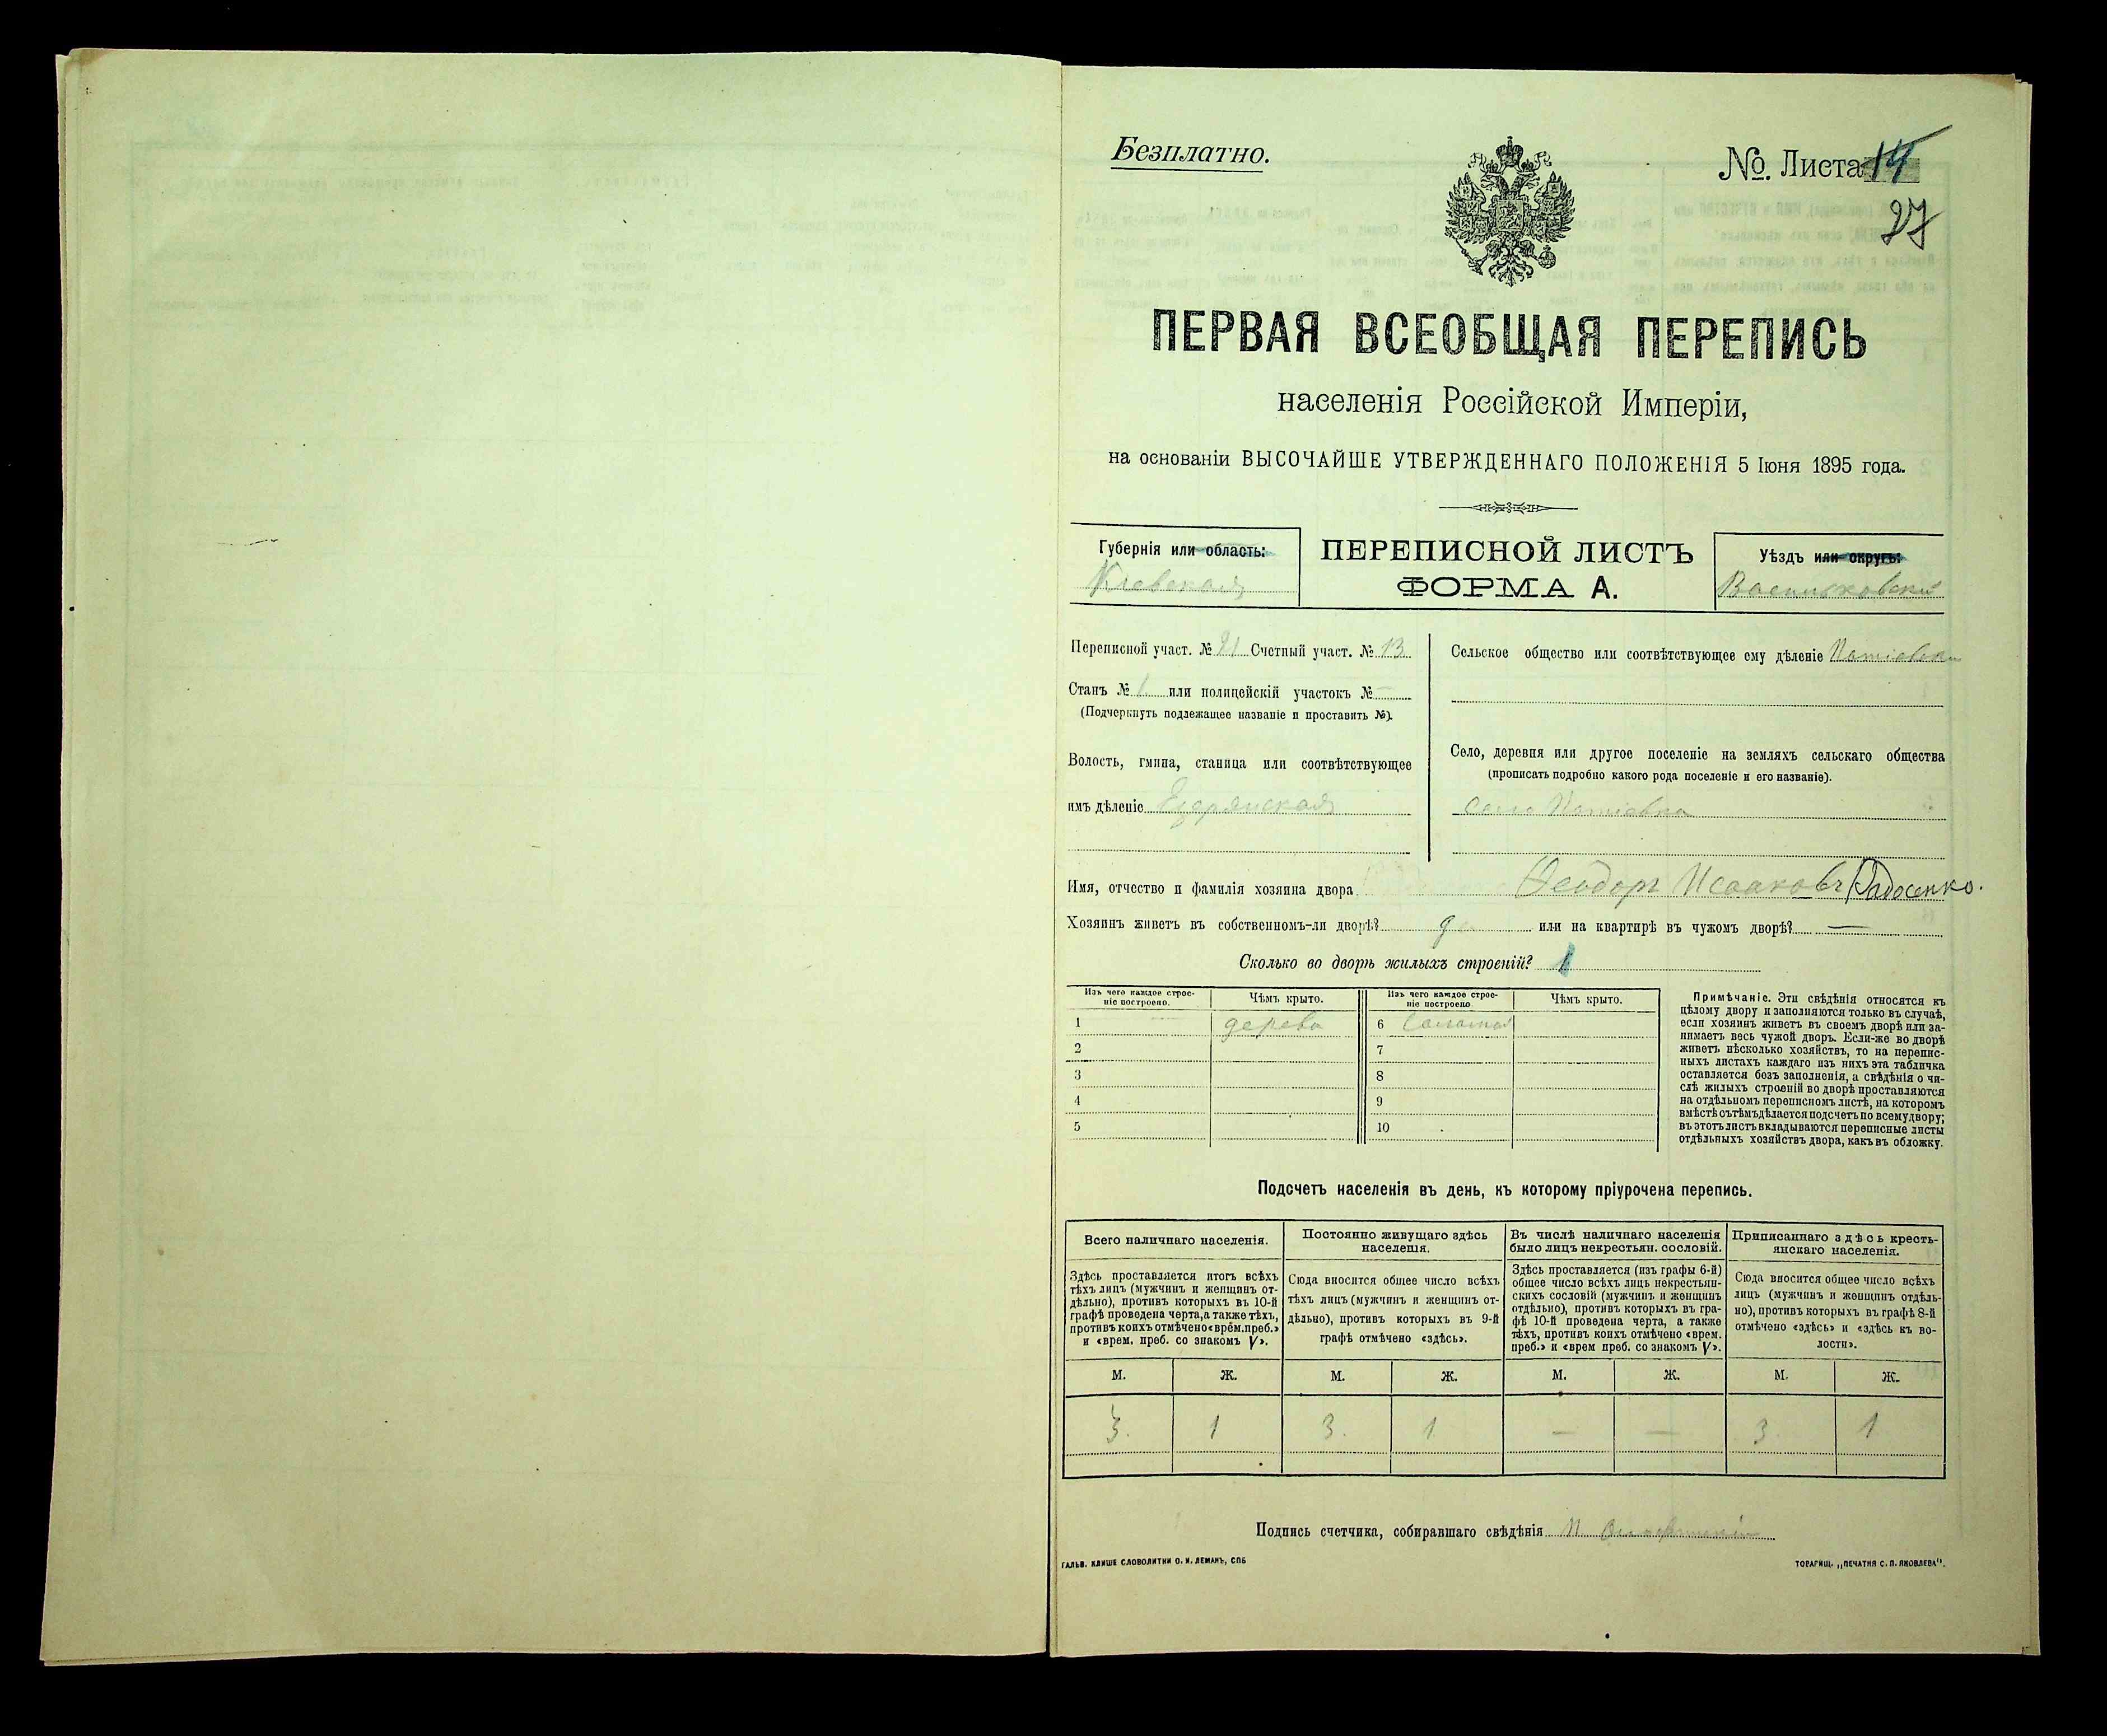 Безплатно.
№. Листа 14
27
ПЕРВАЯ ВСЕОБЩАЯ ПЕРЕПИСЬ
населенія Россійской Имперіи,
на основаніи ВЫСОЧАЙШЕ УТВЕРЖДЕННАГО ПОЛОЖЕНІЯ 5 Іюня 1895 года.
Губернія или область:
Кіевская
ПЕРЕПИСНОЙ ЛИСТЪ
ФОРМА А.
Уѣздъ или округъ:
Васильковскій
Переписной участ. № 21 Счетный участ. № 13
Станъ № 1 или полицейскій участокъ № —
(Подчеркнуть подлежащее названіе и проставить №).
Волость, гмина, станица или соотвѣтствующее
имъ дѣленіе Езерянская
Сельское общество или соотвѣтствующее ему дѣленіе
Село, деревня или другое поселеніе на земляхъ сельскаго общества
(прописать подробно какого рода поселеніе и его названіе).
Село Патіевка
Имя, отчество и фамилія хозяина двора Ѳеодоръ Исааковъ
Хозяинъ живетъ въ собственномъ-ли дворѣ? да или на квартирѣ въ чужомъ дворѣ? —
Сколько во дворѣ жилыхъ строеній? 1
Изъ чего каждое строе-
ніе построено.
Чѣмъ крыто.
Изъ чего каждое строе-
ніе построено
Чѣмъ крыто.
1 — дерево 6 Солома
2 7
3 8
4 9
5 10
Примѣчаніе. Эти свѣдѣнія относятся къ
цѣлому двору и заполняются только въ случаѣ,
если хозяинъ живетъ въ своемъ дворѣ или за-
нимаетъ весь чужой дворъ. Если-же во дворѣ
живетъ нѣсколько хозяйствъ, то на перепис-
ныхъ листахъ каждаго изъ нихъ эта табличка
оставляется безъ заполненія, а свѣдѣнія о чи-
слѣ жилыхъ строеній во дворѣ проставляются
на отдѣльномъ переписномъ листѣ, на которомъ
вмѣстѣ съ тѣмъ дѣлается подсчетъ по всему двору;
въ этотъ листъ вкладываются переписные листы
отдѣльныхъ хозяйствъ двора, какъ въ обложку.
Подсчетъ населенія въ день, къ которому пріурочена перепись.
Всего наличнаго населенія.
Здѣсь проставляется итогъ всѣхъ
тѣхъ лицъ (мужчинъ и женщинъ от-
дѣльно), противъ которыхъ въ 10-й
графѣ проведена черта, а также тѣхъ,
противъ коихъ отмѣчено «врем. преб.»
и «врем. преб. со знакомъ V».
Постоянно живущаго здѣсь
населенія.
Сюда вносится общее число всѣхъ
тѣхъ лицъ (мужчинъ и женщинъ от-
дѣльно), противъ которыхъ въ 9-й
графѣ отмѣчено «здѣсь».
Въ числѣ наличнаго населенія
было лицъ некрестьян. сословій.
Здѣсь проставляется (изъ графы 6-й)
общее число всѣхъ лицъ некрестьян-
скихъ сословій (мужчинъ и женщинъ
отдѣльно), противъ которыхъ въ гра-
фѣ 10-й проведена черта, а также
тѣхъ, противъ коихъ отмѣчено «врем.
преб.» и «врем преб. со знакомъ V».
Приписаннаго здѣсь кресть-
янскаго населенія.
Сюда вносится общее число всѣхъ
лицъ (мужчинъ и женщинъ отдѣль-
но), противъ которыхъ въ графѣ 8-й
отмѣчено «здѣсь» и «здѣсь къ во-
лости».
М. Ж. М. Ж. М. Ж. М. Ж.
3. 1 3. 1 — — 3 1
Подпись счетчика, собиравшаго свѣдѣнія
ГАЛЬВ. КЛИШЕ СЛОВОЛИТНИ О. И. ЛЕМАНЪ, СПБ
ТОВАРИЩ. „ПЕЧАТНЯ С. П. ЯКОВЛЕВА".